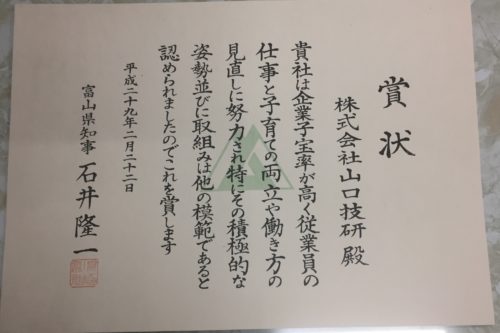 賞状
株式会社山口技研 殿
貴社は企業子宝率が高く従業員の
仕事と子育ての両立や働き方の
見直しに努力され特にその積極的な
姿勢並びに取組みは他の模範であると
認められましたのでこれを賞します
平成二十九年二月二十二日
富山県知事 石井隆一